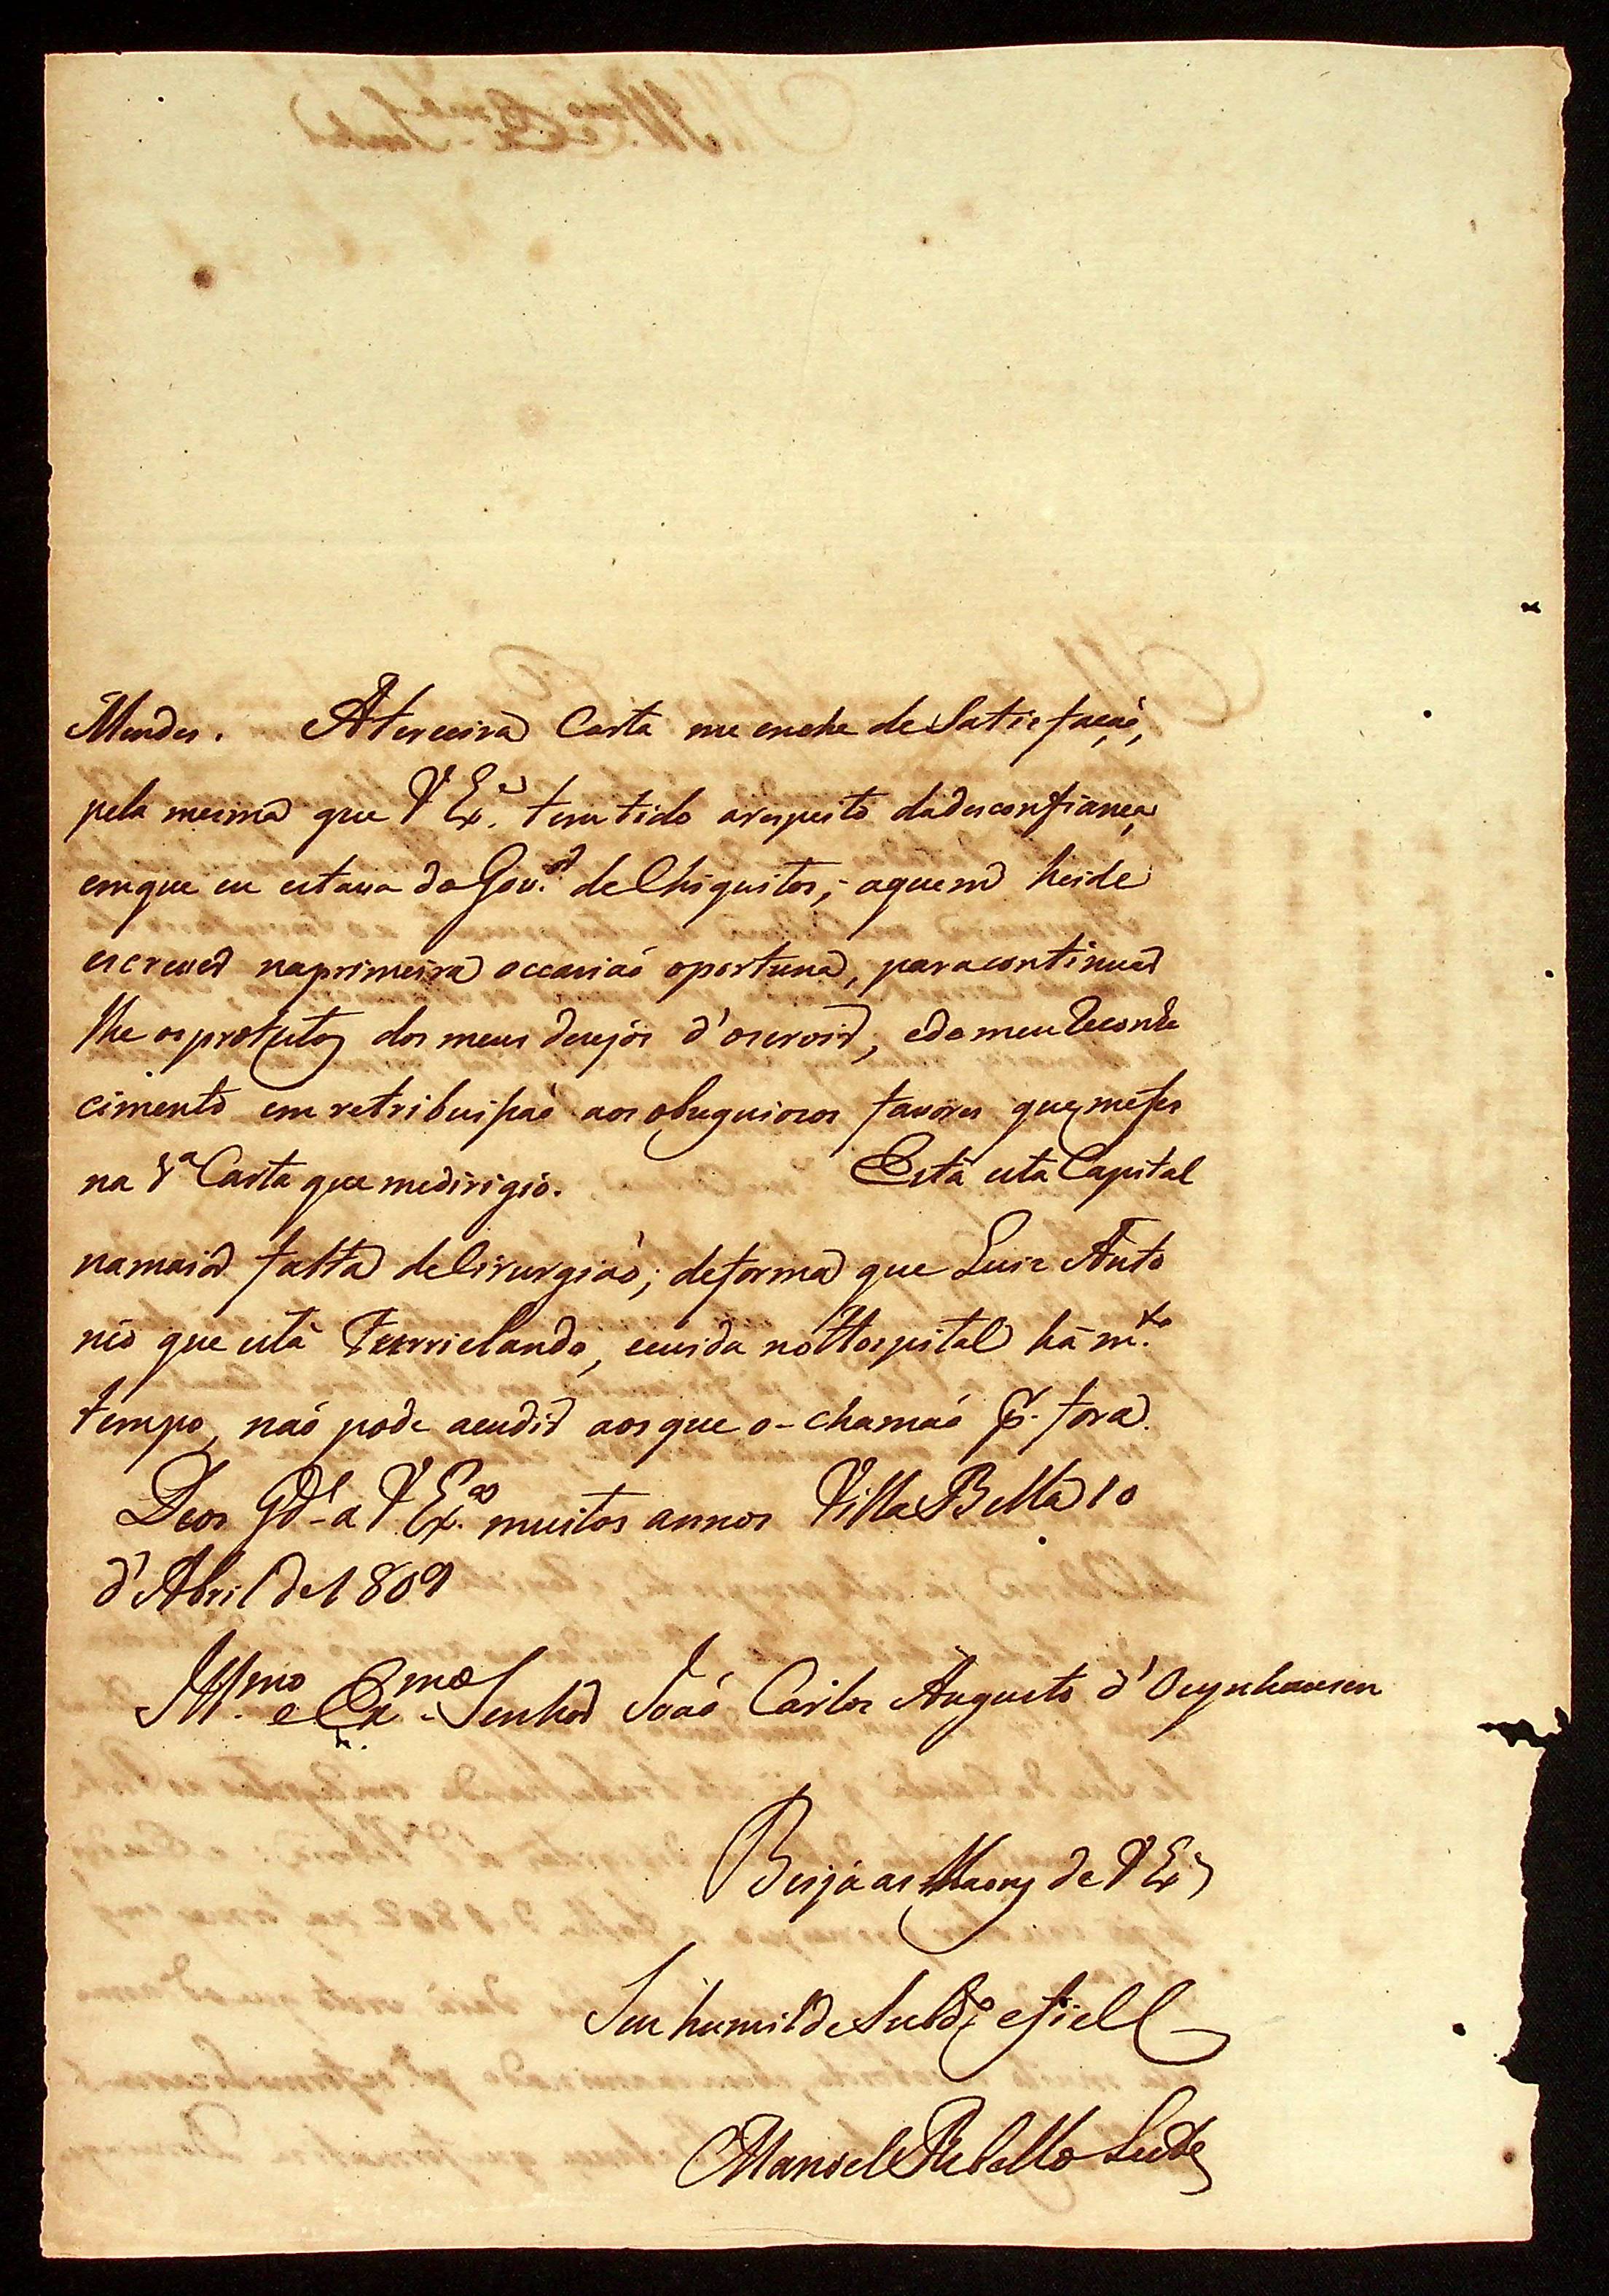 Mendes. Aterceira Carta me enche de Satisfaçaõ,
pela mesma que V Ex.ª tem tido arespeito dadesconfiança,
emque eu estava do Gov.or de Chiquitos; aquem heide
escrever naprimeira occasiaõ oportuna, paracontinuar
lhe osprotestos dos meus desejos d'oservir, edomeu Reconhe
cimento em retribuissaõ aos obsequiosos favores que mefes
na Carta que medirigio. Está esta Capital
namaior falta deCirurgiaõ; deforma que Luiz Anto
nio que está Furrielando, ecuida noHospital há m.to
tempo, naõ pode acudir aosque o-chamaõ p.r fora.
Deos Gd.e a V Ex.ª muitos annos Villa Bella 10
d'Abril de 1809
Ill.mo e Ex.mo Senhor Joaõ Carlos Augusto d'Oeynhausen
Beija as Maons de V Ex.ª
Seu humilde Subd.o efiel
Manoel Rebello